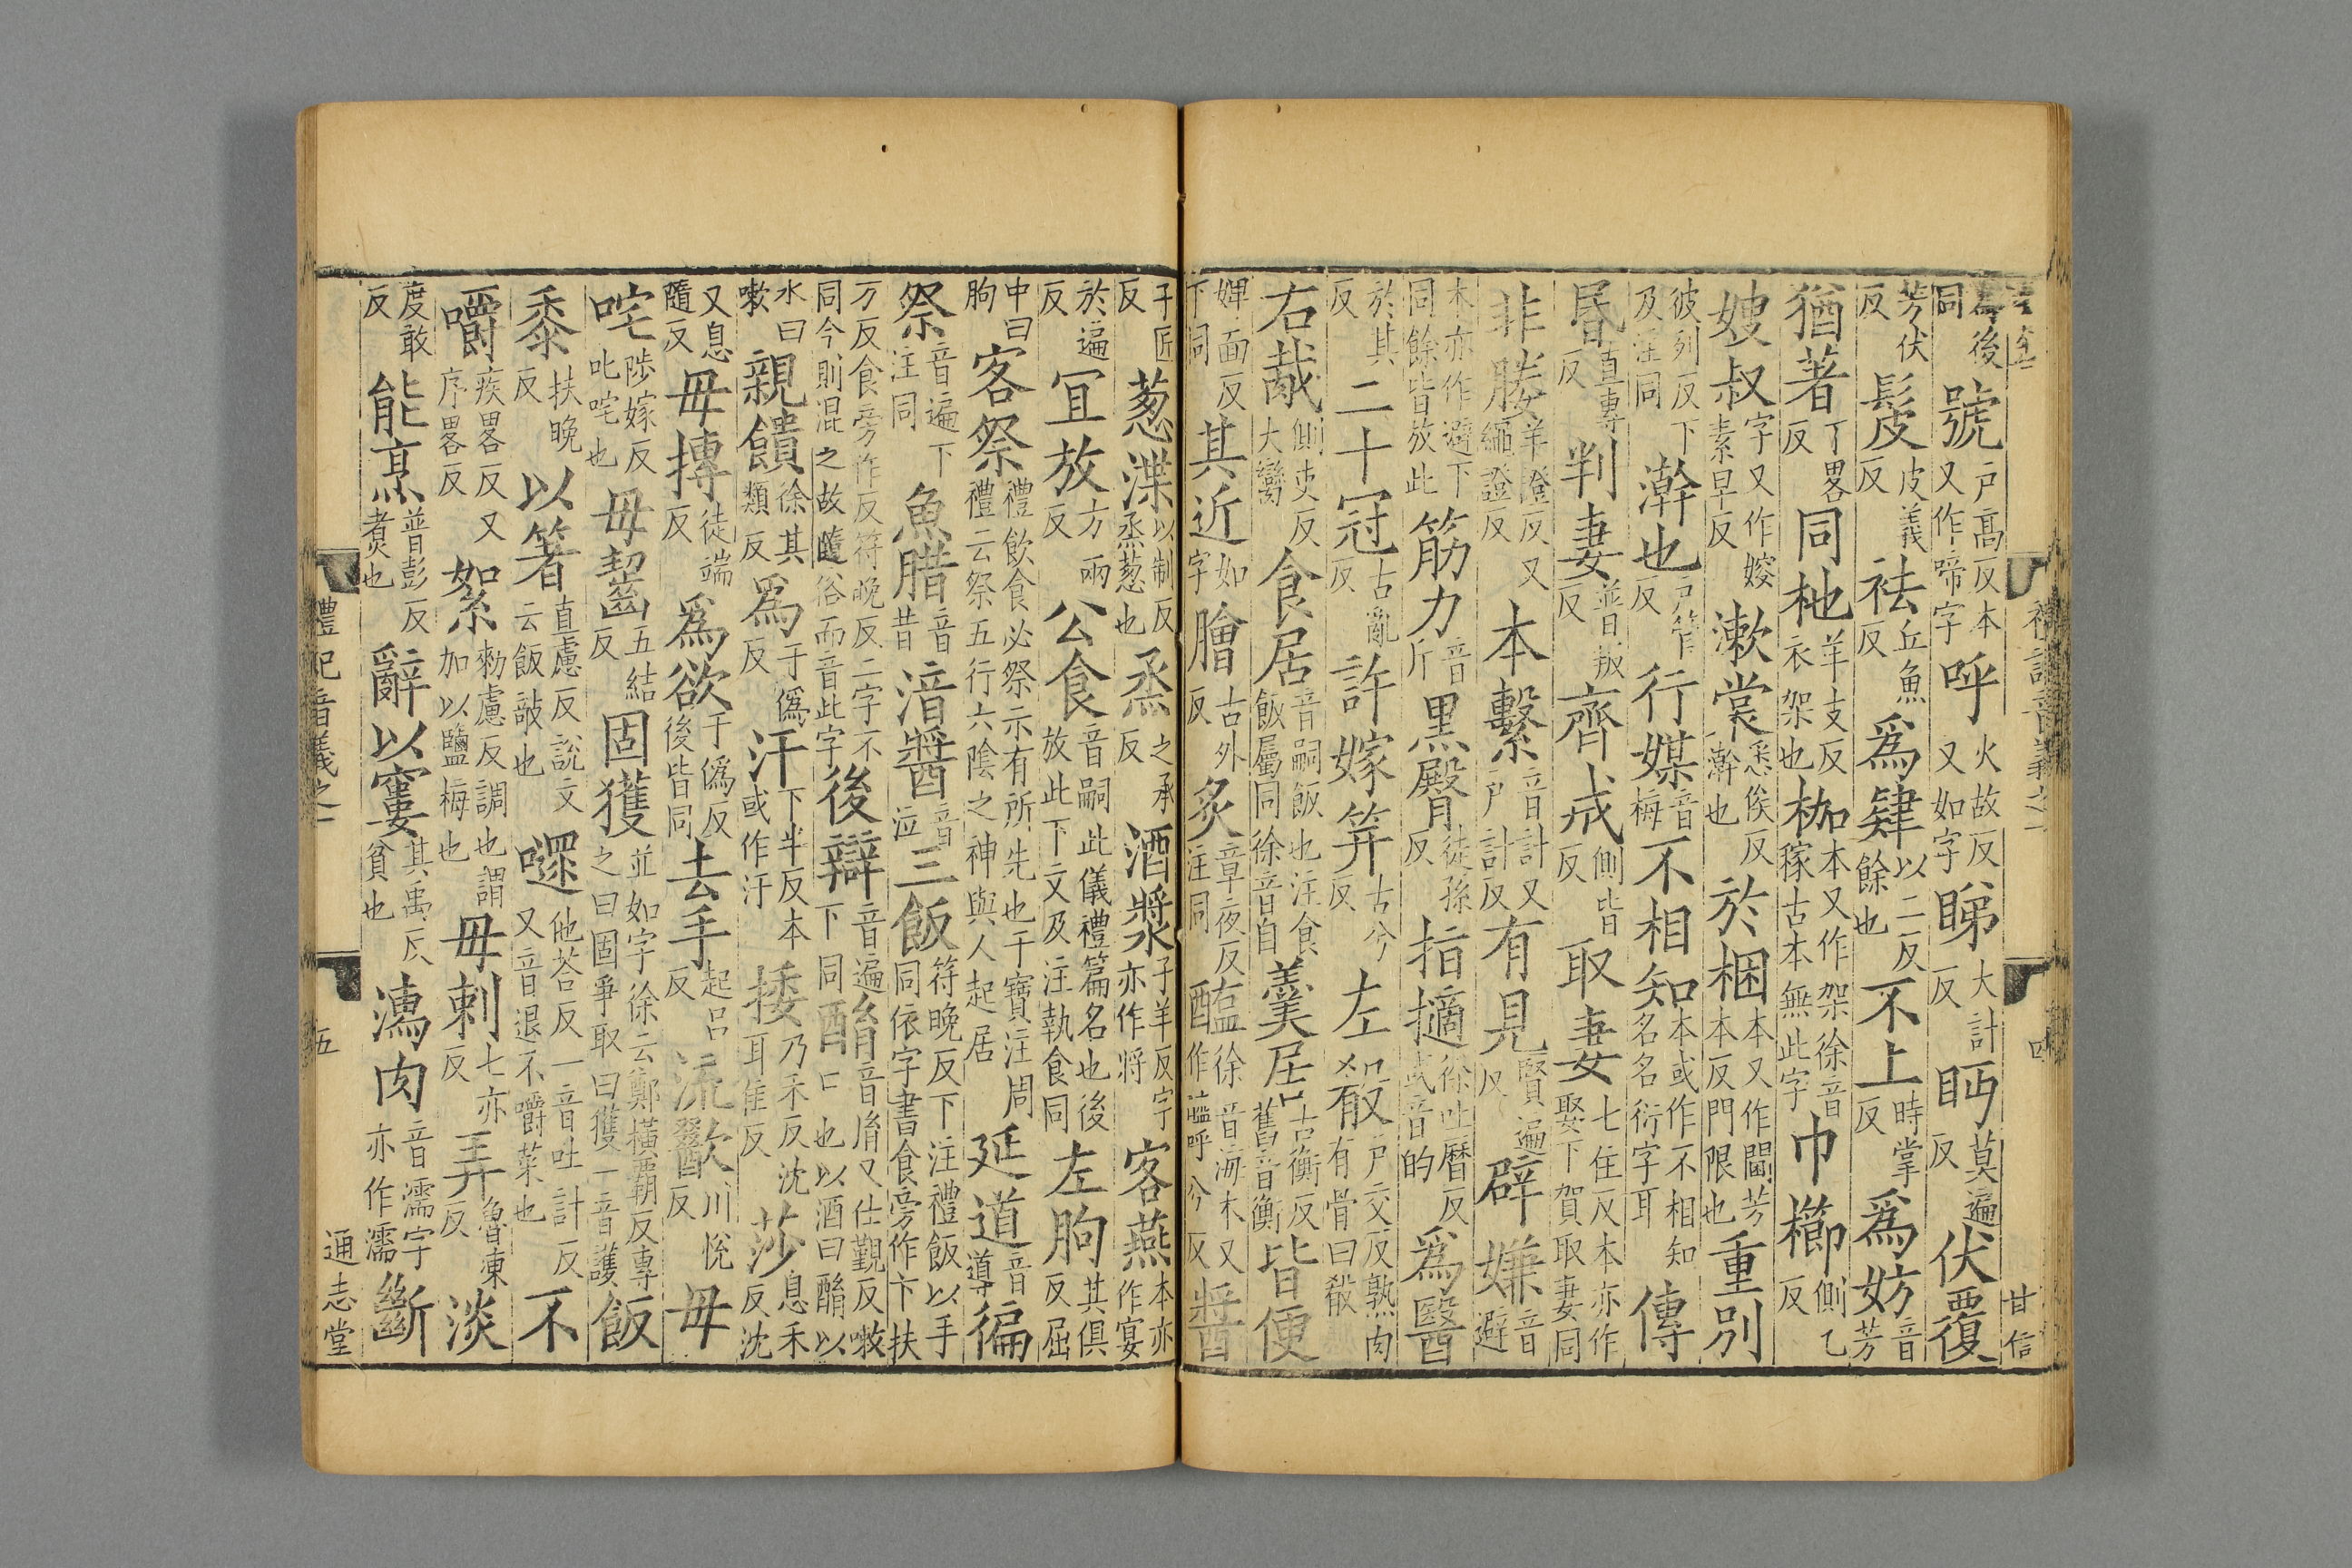 禮記音義之一 四 甘信
爲後同 號戶高反本又作啼字 呼火故反又如字 睇大計反 眄莫遍反 伏覆
芳伏反 髲皮義反 袪丘魚反 爲肄以二反餘也 不上時掌反 爲妨音芳
猶著丁畧反 同杝羊支反衣架也 枷本又作架徐音稼古本無此字 巾櫛側乙反
嫂叔字又作㛮素早反 漱裳悉侯反澣也 於梱本又作閫芳本反門限也 重別
彼列反下及注同 澣也戶管反 行媒音梅 不相知本或作不相知名名衍字耳 傳
昬直專反 判妻普叛反 齊戒側皆反 取妻七住反本亦作娶下賀取妻同
非媵羊證反又繩證反 本繫音計又戶計反 有見賢遍反 辟嫌音避
本亦作避下同餘皆放此 筋力音斤 黑臀徒孫反 指擿徐吐曆反或音的 爲醫
於其反 二十冠古亂反 許嫁笄古兮反 左殽戶交反熟肉有骨曰殽
右胾側吏反大臠 食居音嗣飯也注食飯屬同徐音自 羹居古衡反舊音衡 皆便
婢面反下同 其近如字 膾古外反 炙章夜反注同 醯徐音海本又作醯呼兮反 醬
子匠反 葱渫以制反烝葱也 烝之承反 酒漿子羊反字亦作將 客燕本亦作宴
於遍反 宜放方兩反 公食音嗣此儀禮篇名也後放此下文及注執食同 左朐其俱反屈
中曰朐 客祭禮飲食必祭示有所先也干寶注周禮云祭五行六陰之神與人起居 延道音導 徧
祭音遍下注同 魚腊音昔 湇醬音泣 三飯符晚反下注禮飯以手同依字書食旁作卞扶
万反食旁作反符晚反二字不同今則混之故隨俗而音此字 後辯音遍下同 酳音胤又仕覲反嗽口也以酒曰酳以
水曰嗽 親饋徐其類反 爲于僞反 汗下半反本或作汙 挼乃禾反沈耳隹反 莎息禾反沈
又息隨反 毋摶徒端反 爲欲于僞反後皆同 去手起呂反 流歠川悅反 毋
咤陟嫁反叱咤也 毋齧五結反 固獲並如字徐云鄭橫霸反專之曰固爭取曰獲一音護 飯
黍扶晚反 以箸直慮反說文云飯攲也 嚃他荅反一音吐計反又音退不嚼菜也 不
嚼疾畧反又序畧反 絮勑慮反調也謂加以鹽梅也 毋刺七亦反 弄魯凍反 淡
度敢反 能亨普彭反煮也 辭以窶其禹反貧也 濡肉音濡字亦作濡 斷
禮記音義之一 五 通志堂